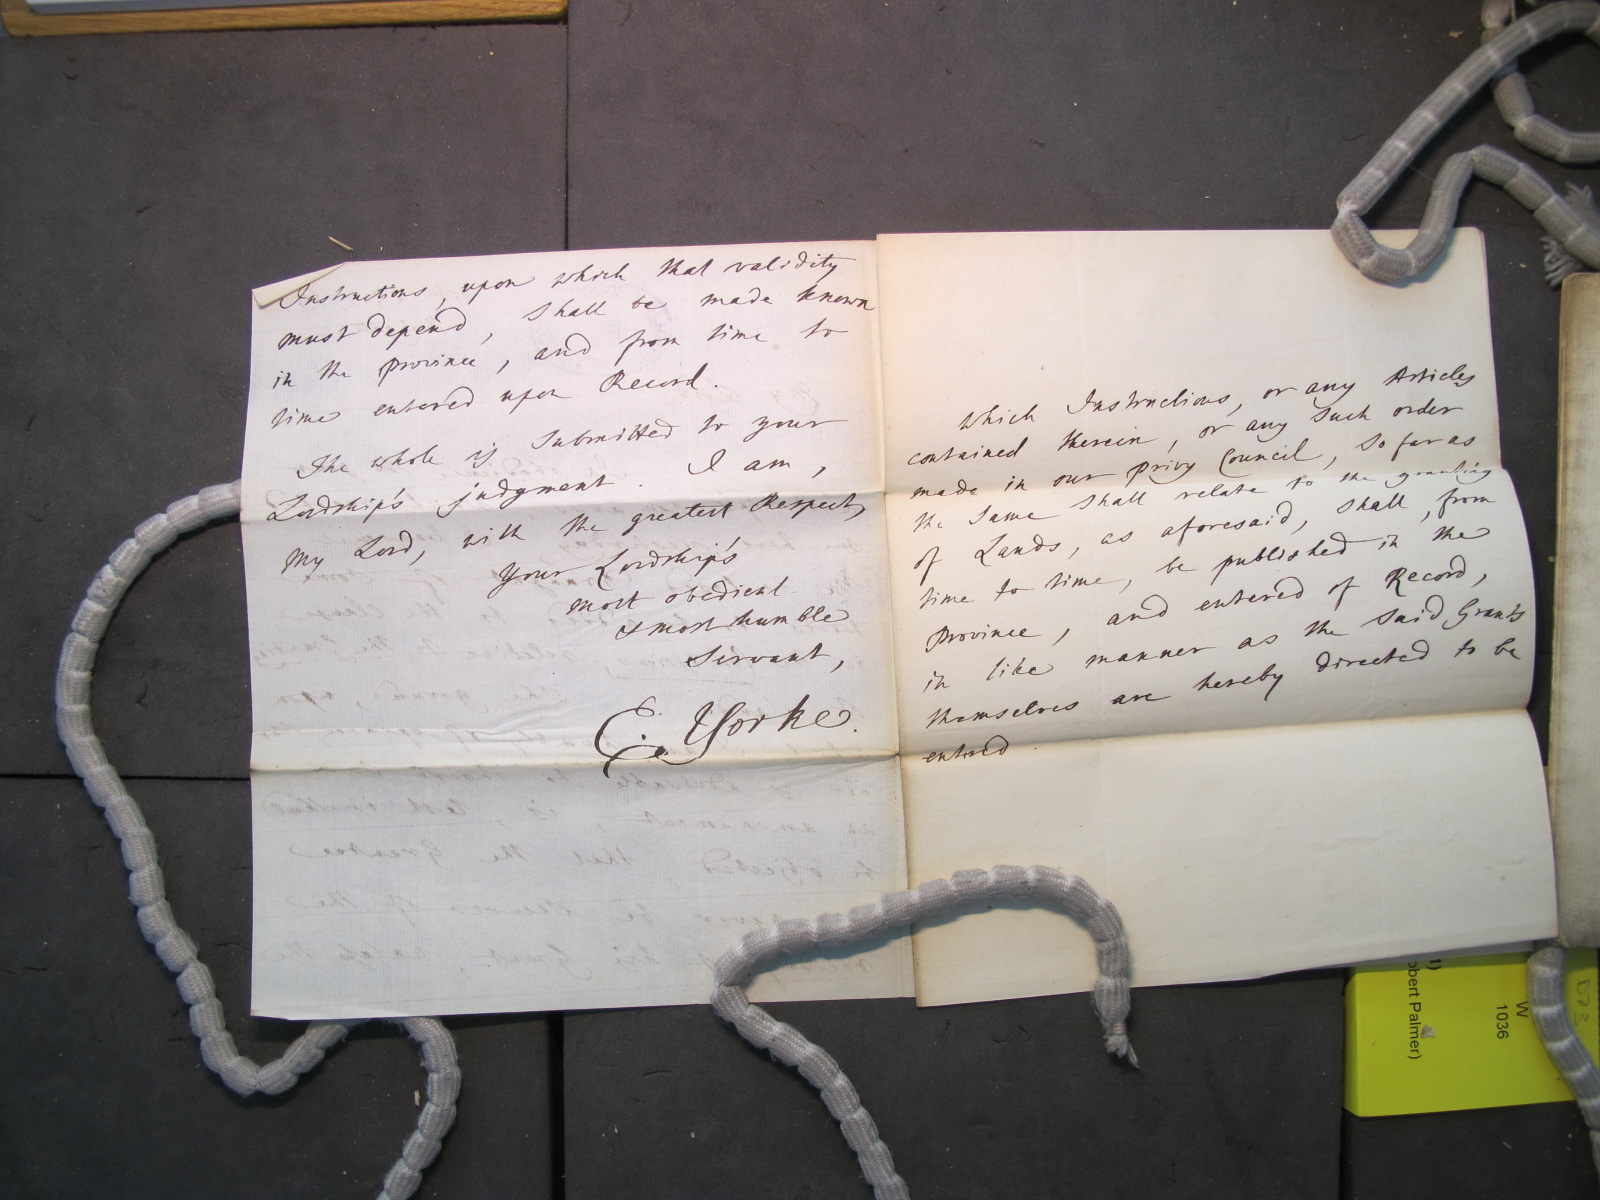 Instructions, upon which that validity
must depend, shall be made known
in the province, and from time to
time entered upon Record.
The whole is submitted to your
Lordship's judgment. I am,
My Lord, with the greatest Respect,
Your Lordship's
most obedient
& most humble
Servant,
C. Yorke.
which Instructions, or any Articles
contained therein, or any such order
made in our privy Council, so far as
the same shall relate to the granting
of Lands, as aforesaid, shall, from
time to time, be published in the
province, and entered of Record,
in like manner as the said Grants
themselves are hereby directed to be
entred
1)
obert Palmer)
W
1036